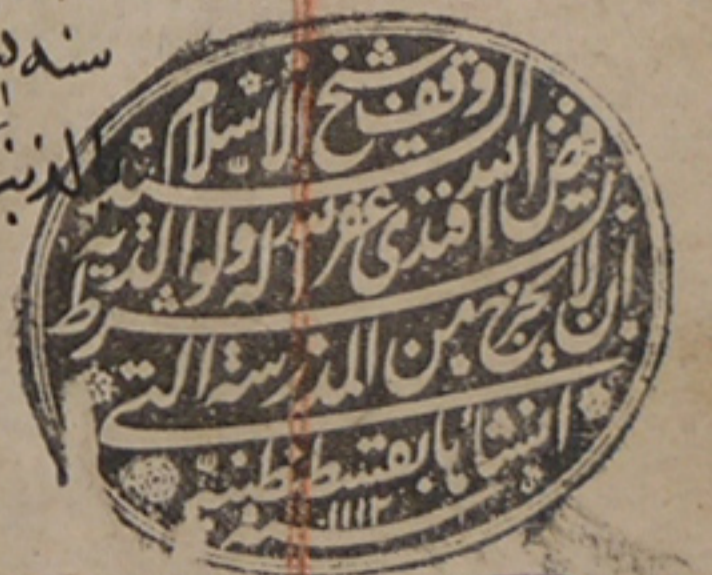 سنه
وقف شيخ الاسلام السيد
فيض الله افندى غفر الله له ولوالديه
بشرط ان لا يخرج من المدرسة التى
انشأها بقسطنطنية
سنة ١١١٢